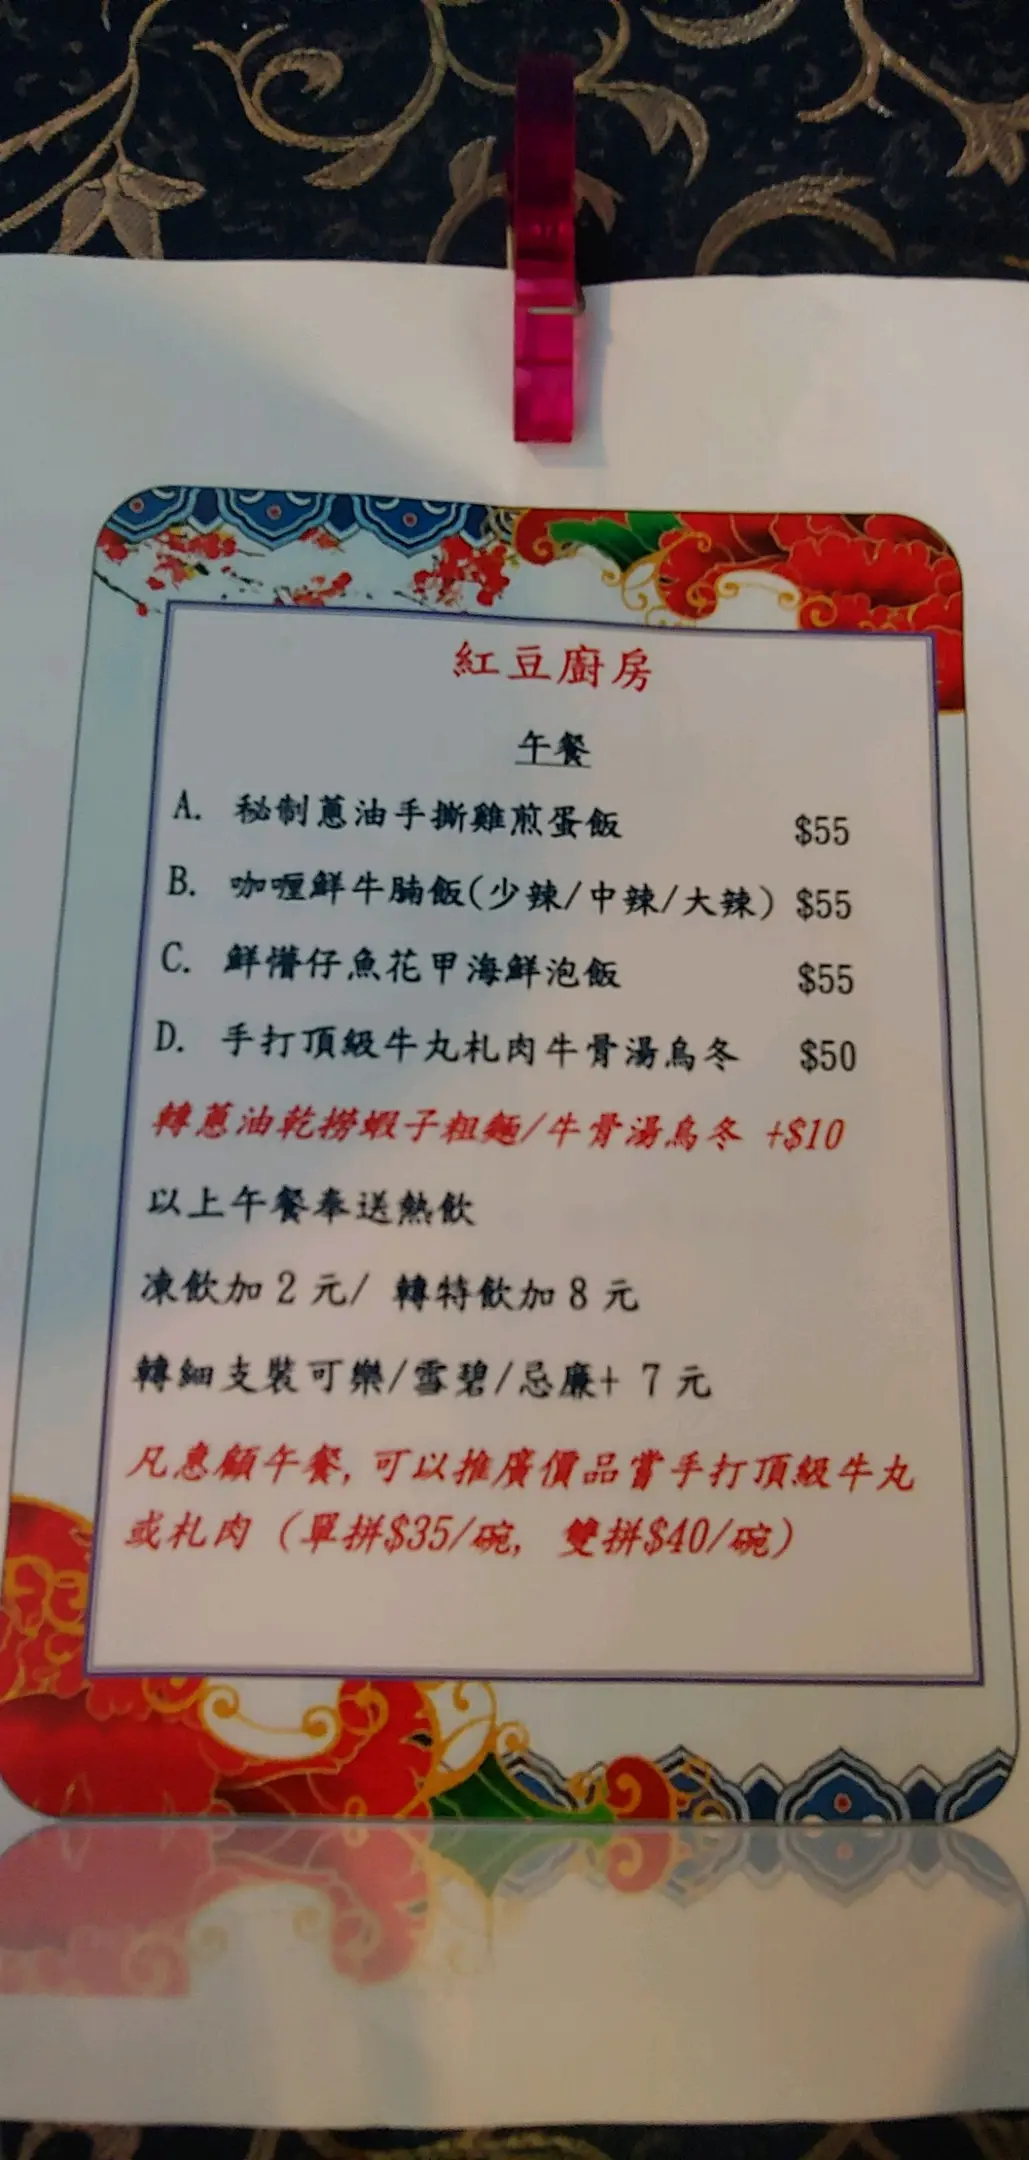 紅豆廚房
午餐
A. 秘制蔥油手撕雞煎蛋飯 $55
B. 咖喱鮮牛腩飯(少辣/中辣/大辣) $55
C. 鮮懵仔魚花甲海鮮泡飯 $55
D. 手打頂級牛丸札肉牛骨湯烏冬 $50
轉蔥油乾撈蝦子粗麵/牛骨湯烏冬 +$10
以上午餐奉送熱飲
凍飲加 2 元/ 轉特飲加 8 元
轉細支裝可樂/雪碧/忌廉+ 7 元
凡惠顧午餐, 可以推廣價品嘗手打頂級牛丸
或札肉 (單拼$35/碗, 雙拼$40/碗)